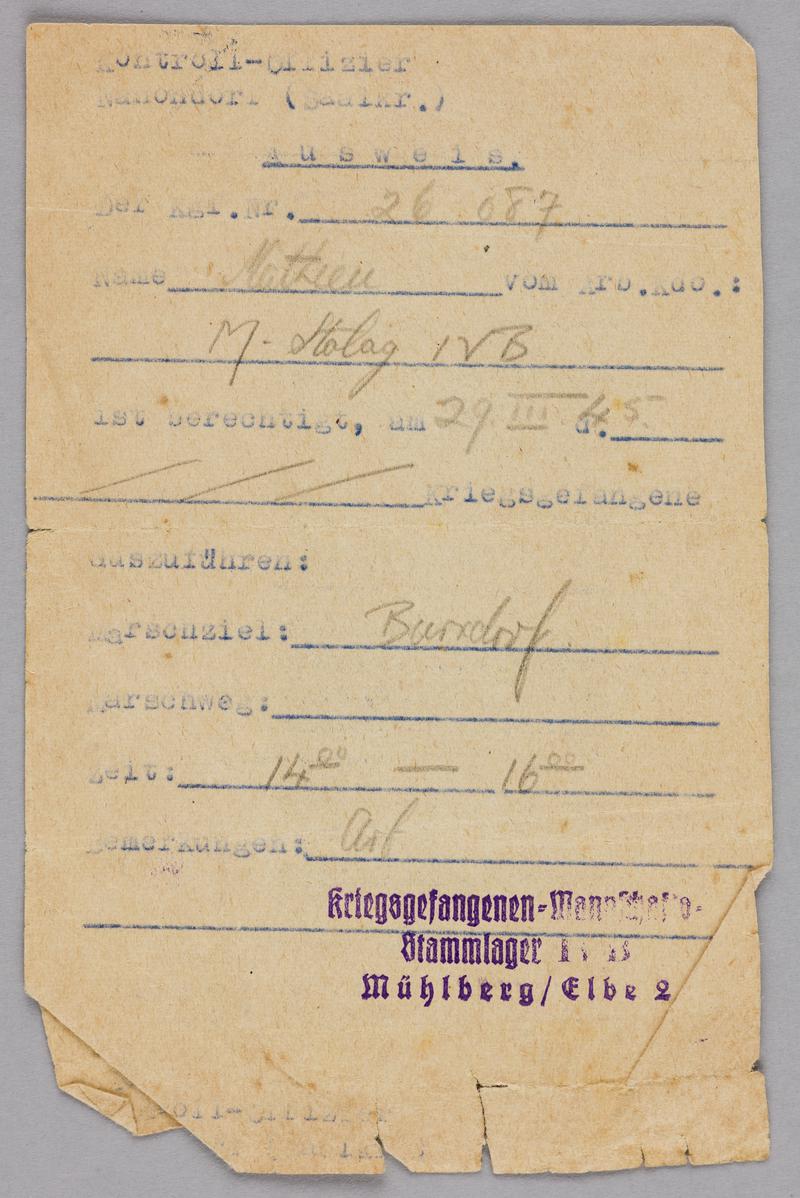 Kontroll-Offizier
(Saalkr.)
Ausweis.
Der Kgf.Nr. 26 087
Name Mathieu vom Arb.Kdo.:
M-Stalag IVB
ist berechtigt, am 29. III. 45. d.
Kriegsgefangene
auszuführen:
Marschziel: Burxdorf
Marschweg:
Zeit: 14⁰⁰ — 16⁰⁰
Bemerkungen:
Kriegsgefangenen-Mannschafts-
Stammlager IV B
Mühlberg/Elbe 2
oll-Offizier